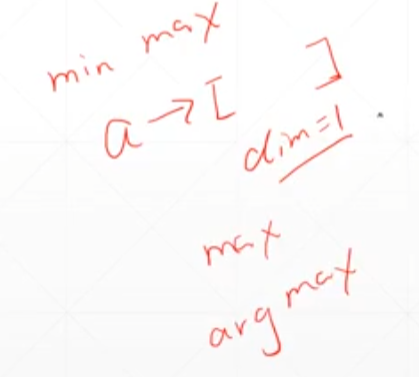 min max
a → [ ]
dim=1
max
arg max